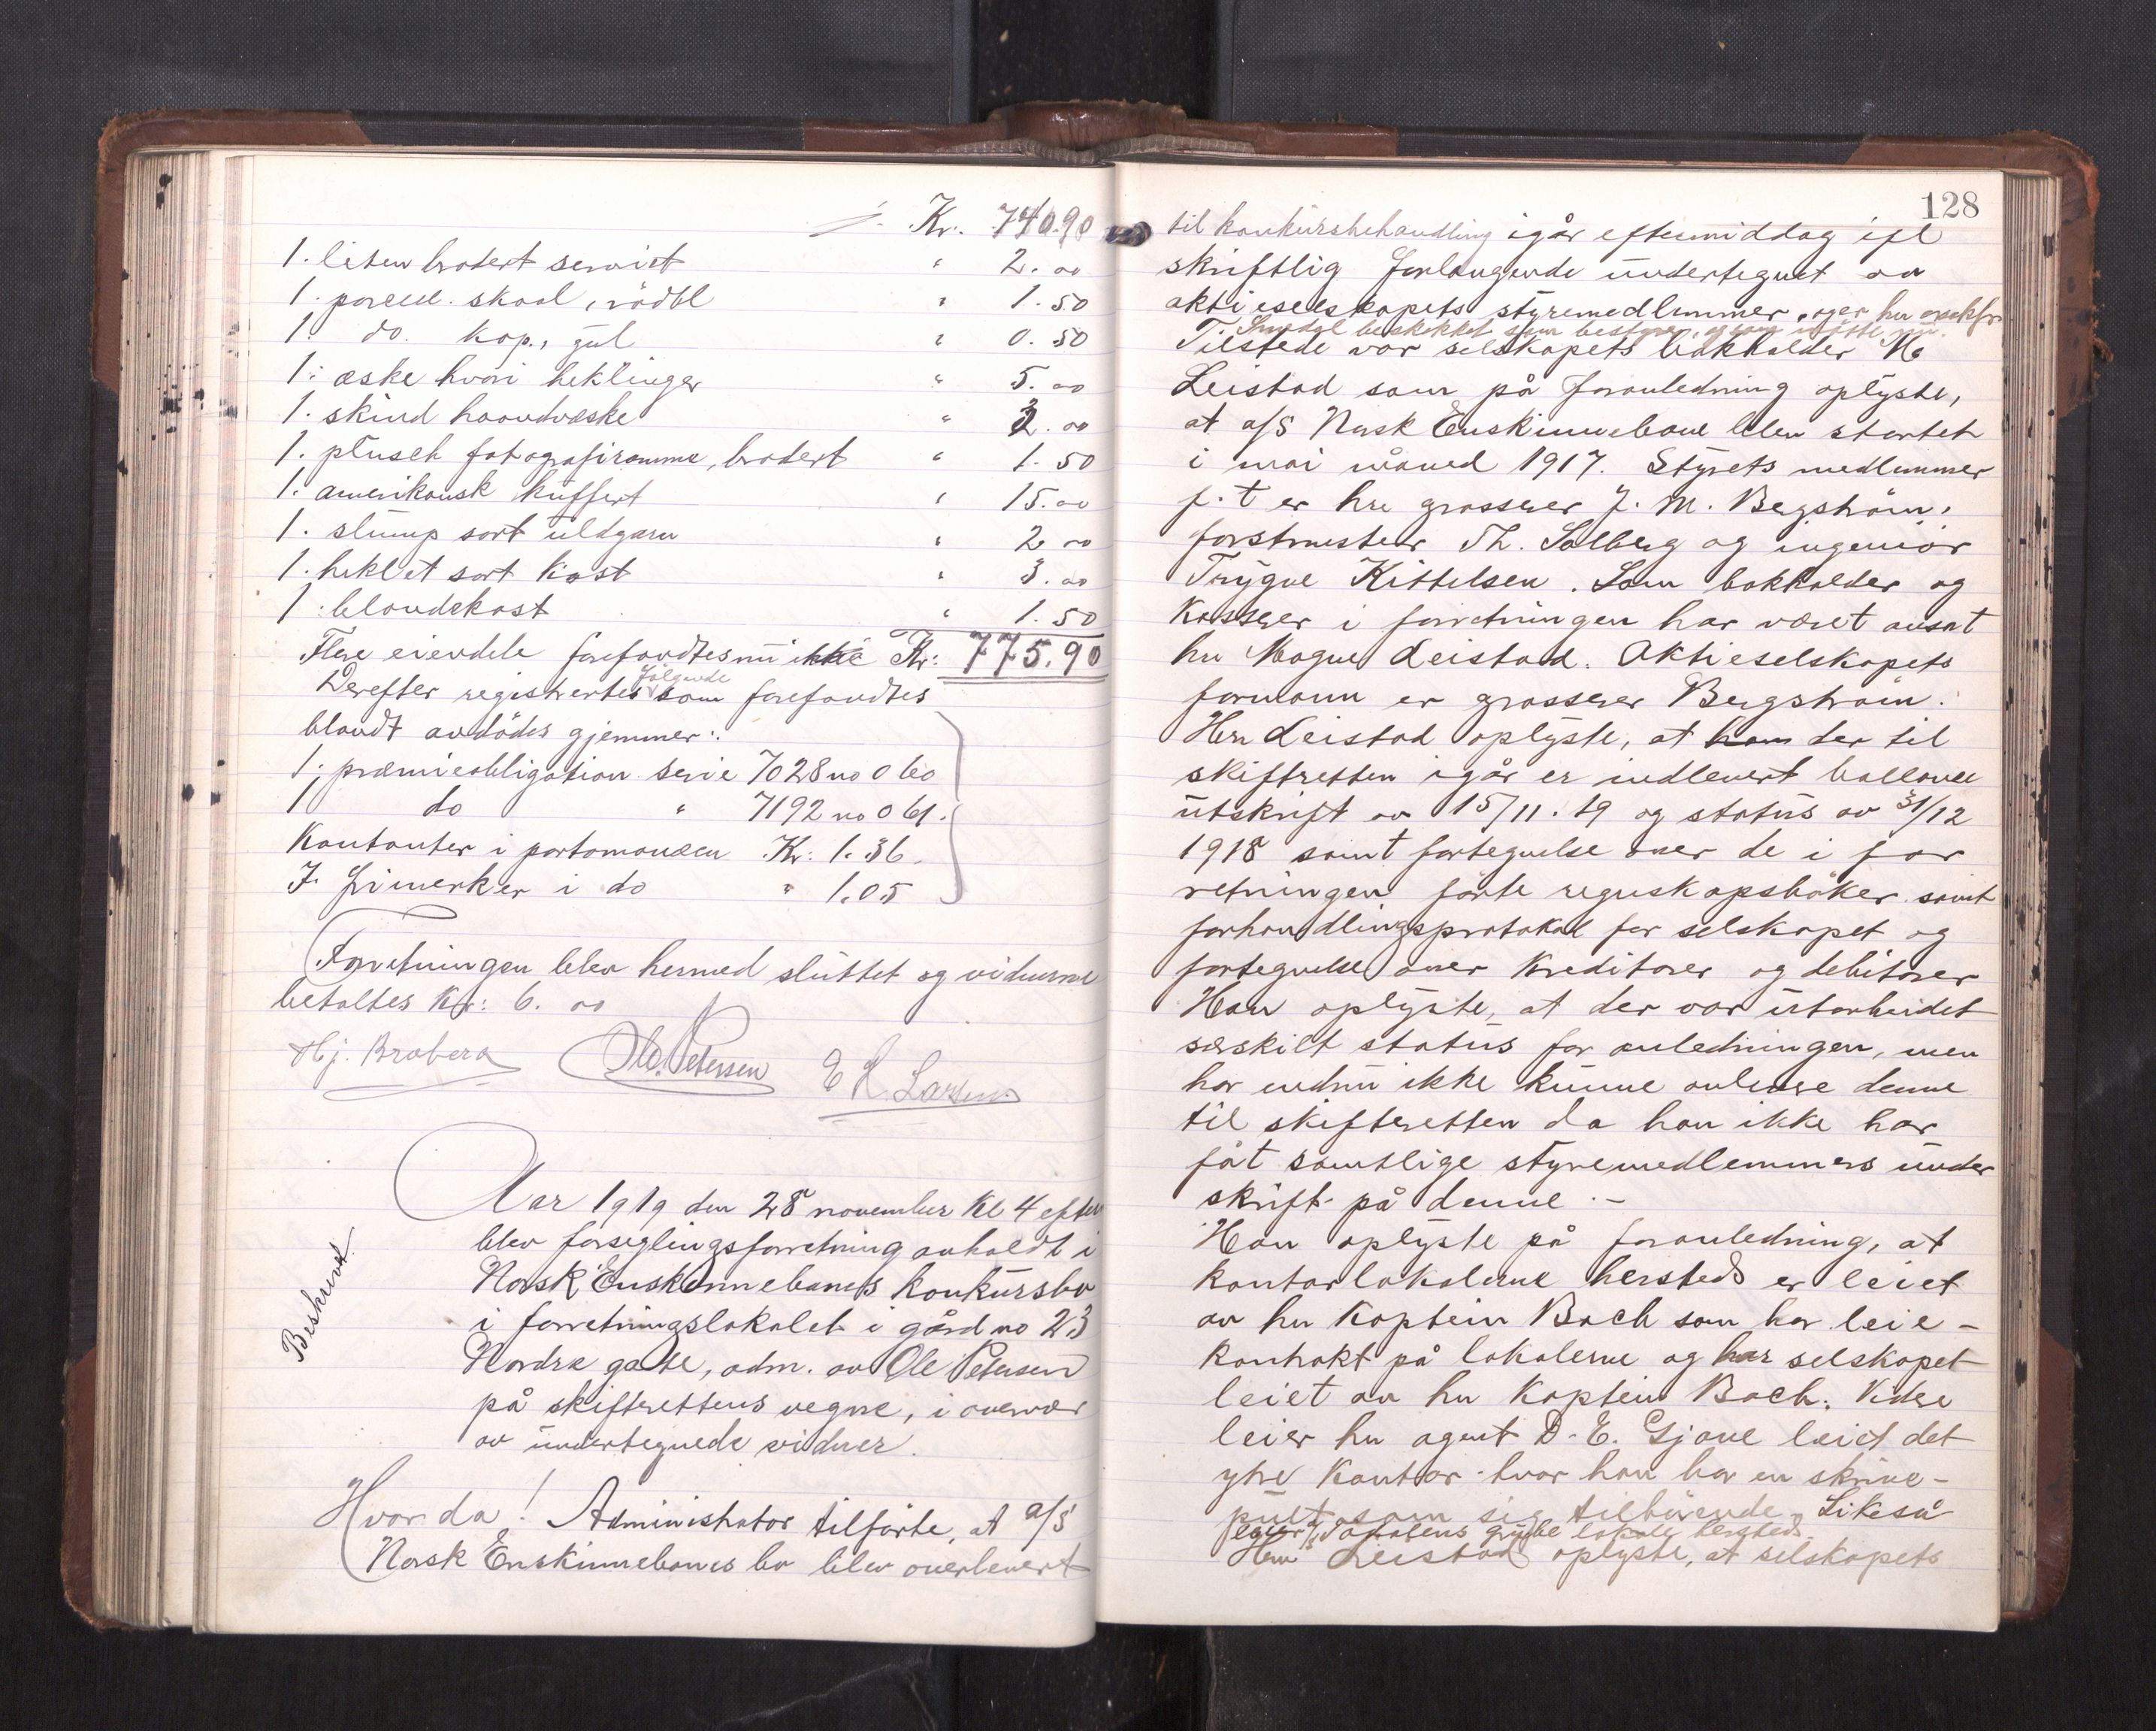 Kr. 740.90
1. liten brodert serviet " 2.00
1. porcel. skaal, rödbl " 1.50
1. do. kop., gul " 0.50
1. æske hvori heklinger " 5.00
1. skind haandvæske " 2.00
1. plusch fotografiramme, brodert " 1.50
1. amerikansk kuffert " 15.00
1. slump sort uldgarn " 2.00
1. heklet sort kast " 3.00
1. blondekast " 1.50
Flere eiendele forefandtes nu ikke Kr: 775.90
Derefter registrertes følgende som forefandtes
blandt avdödes gjemmer:
1. præmieobligation serie 7028 no 060
1 do " 7192 no 061.
Kontanter i portomonæen Kr: 1.36.
7. frimerker i do " 1.05
Forretningen blev hermed sluttet og vidnerne
betaltes Kr: 6.00
Hj. Broberg Ole Petersen E L. Larsen
Beskrevet
Aar 1919 den 28 november kl 4 efter
blev forseglingsforretning avholdt i
Norsk Enskinnebanes konkursbo
i forretningslokalet i gård no 23
Nordre gate, adm. av Ole Petersen
på skifterettens vegne, i overvær
av undertegnede vidner.
Hvor da! Administrator tilførte, at a/S
Norsk Enskinnebanes bo blev overlevert
128
til konkursbehandling igår eftermiddag ifl
skriftlig forlangende undertegnet av
aktieselskapets styremedlemmer, og er hr
Smedal beskikket som bestyrer,
Tilstede var selskapets bokholder Mo
Leistad som på foranledning oplyste,
at a/S Norsk Enskinnebane blev startet
i mai måned 1917. Styrets medlemmer
p.t er hrr grosserer J. M. Bergström,
forstmester Th. Solberg og ingeniör
Trygve Kittelsen. Som bokholder og
kasserer i forretningen har været ansat
hr Magne Leistad. Aktieselskapets
formann er grosserer Bergström.
Herr Leistad oplyste, at ham der til
skifteretten igår er indlevert ballance
utskrift av 15/11.19 og status av 31/12
1918 samt fortegnelse over de i for
retningen førte regnskapsbøker samt
forhandlingsprotokol for selskapet og
fortegnelse over kreditorer og debitorer
Han oplyste, at der var utarbeidet
særskilt status for anledningen, men
har endnu ikke kunne avlevere denne
til skifteretten da han ikke har
fåt samtlige styremedlemmers under
skrift på denne.-
Han oplyste på foranledning, at
kontorlokalerne hersteds er leiet
av hr kaptein Bach som har leie-
kontrakt på lokalerne og har selskapet
leiet av hr kaptein Bach. Videre
leier hr agent D. E. Gjone leiet det
ytre kontor hvor han har en skrive-
pult som sig tilhörende. Likeså
lokale hersteds.
Herr Leistad oplyste, at selskapets